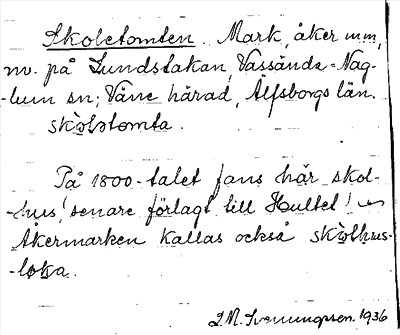 Skoletomten. Mark, åker m.m,
nv. på Lundstakan, Vassända-Nag-
-lum sn; Väne härad, Älfsborgs län.
skòlstomta.
På 1800-talet fans här skol-
-hus, senare förlagt till Hultet!
Åkermarken kallas också skòlhus-
-loka.
J.M. Svenungsen. 1936